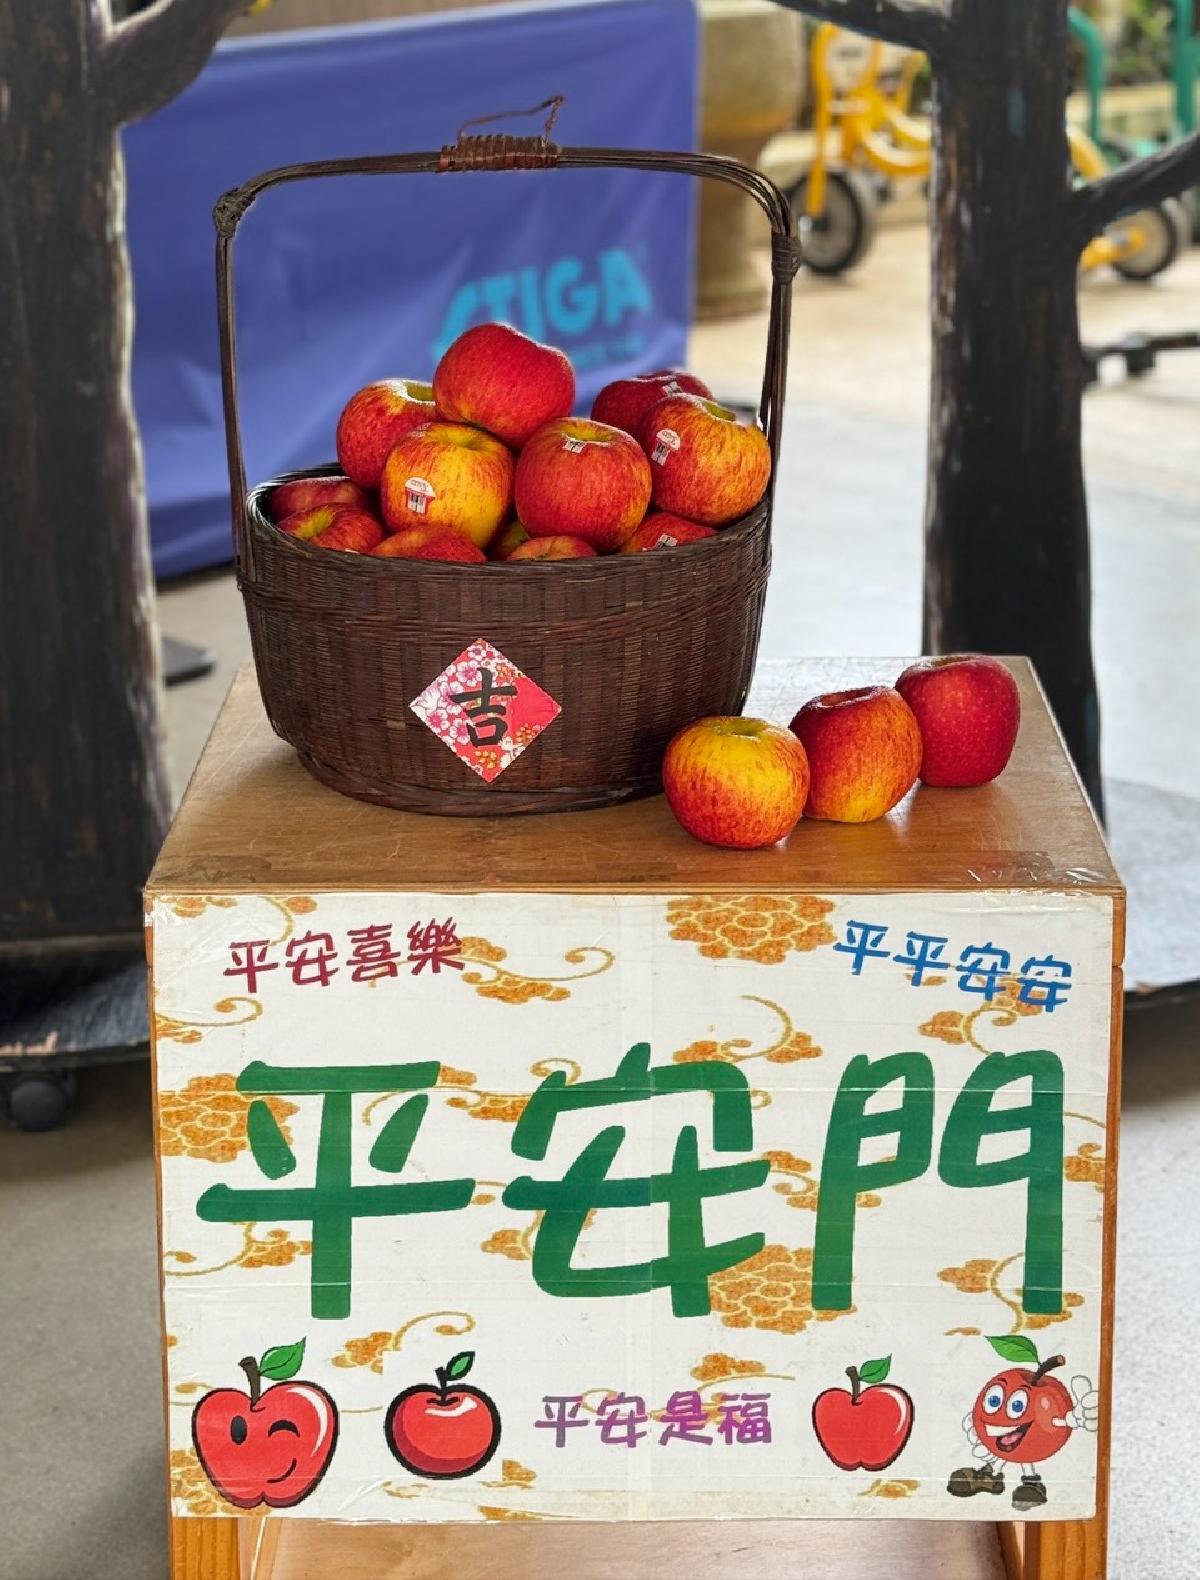 STIGA
吉
平安喜樂
平平安安
平安門
平安是福